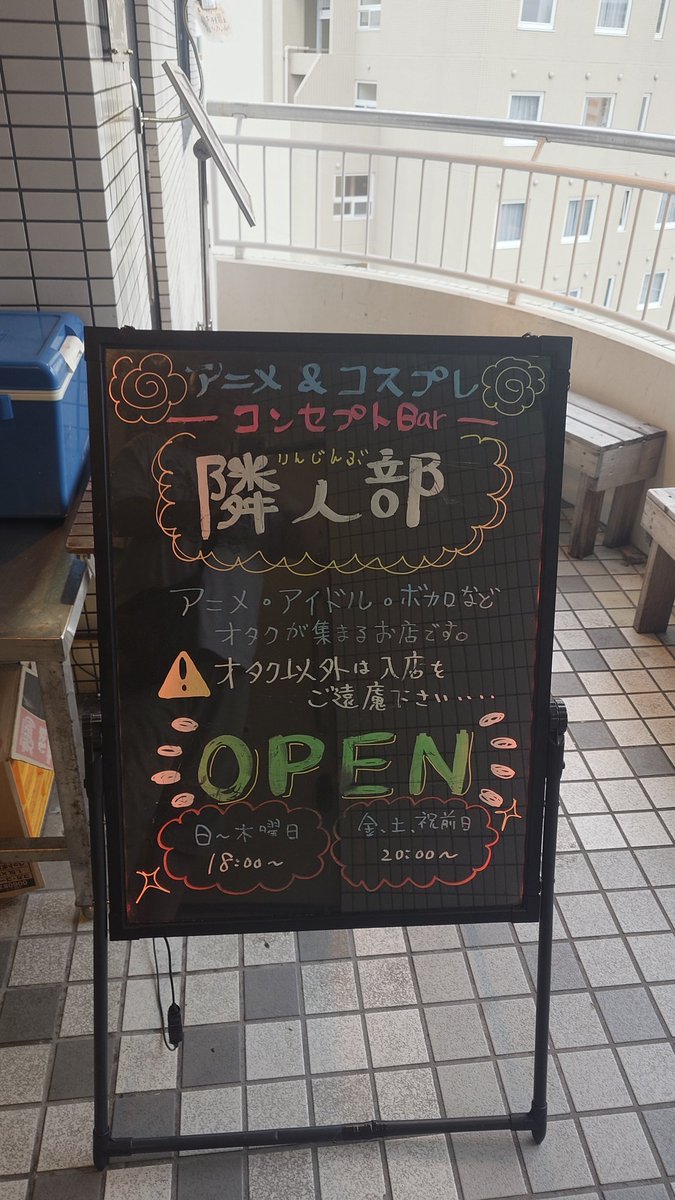 アニメ & コスプレ
ー コンセプトBar ー
りんじんぶ
隣人部
アニメ。アイドル。ボカロなど
オタクが集まるお店です。
⚠ オタク以外は入店を
ご遠魔下さい.....
OPEN
日〜木曜日
18:00〜
金、土、祝前日
20:00〜